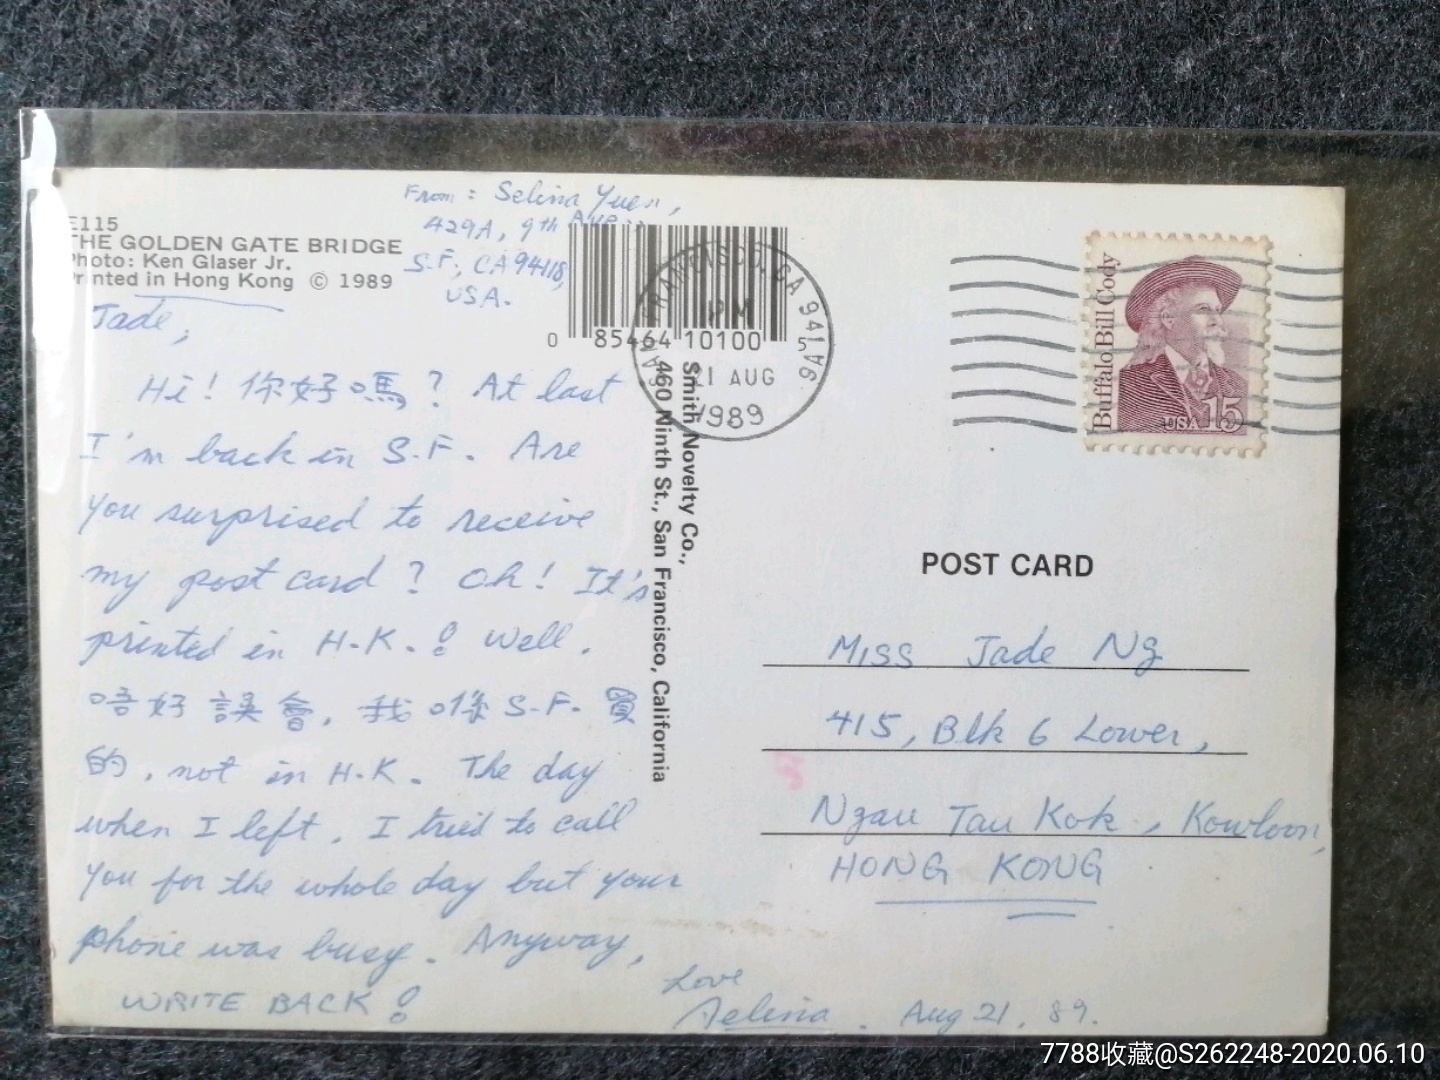 From: Selina Yuen,
429A, 9th Ave.,
S.F., CA 94118,
USA.
E115
THE GOLDEN GATE BRIDGE
Photo: Ken Glaser Jr.
Printed in Hong Kong © 1989
Jade,
Hi! 你好嗎? At last
I'm back in S.F. Are
you surprised to receive
my post card? Oh! It's
printed in H.K.! Well.
唔好誤會, 我喺 S.F. 買
的, not in H.K. The day
when I left, I tried to call
you for the whole day but your
phone was busy. Anyway,
WRITE BACK!
Love
Selina. Aug 21, 89.
0 85464 10100 5
Smith Novelty Co.,
460 Ninth St., San Francisco, California
SAN FRANCISCO, CA 941
PM
21 AUG
1989
Buffalo Bill Cody
USA 15
POST CARD
MISS Jade Ng
415, Blk 6 Lower,
Ngau Tau Kok, Kowloon,
HONG KONG
7788收藏@S262248-2020.06.10